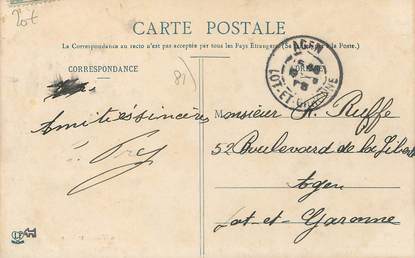 20t
CARTE POSTALE
La Correspondance au recto n'est pas acceptée par tous les Pays Étrangers (Se à la Poste.)
CORRESPONDANCE
81
AGEN
LOT-ET-GARONNE
Amitiés sincères
Monsieur A. Ruffe
52 Boulevard de la Liberté
Agen
Lot-et-Garonne